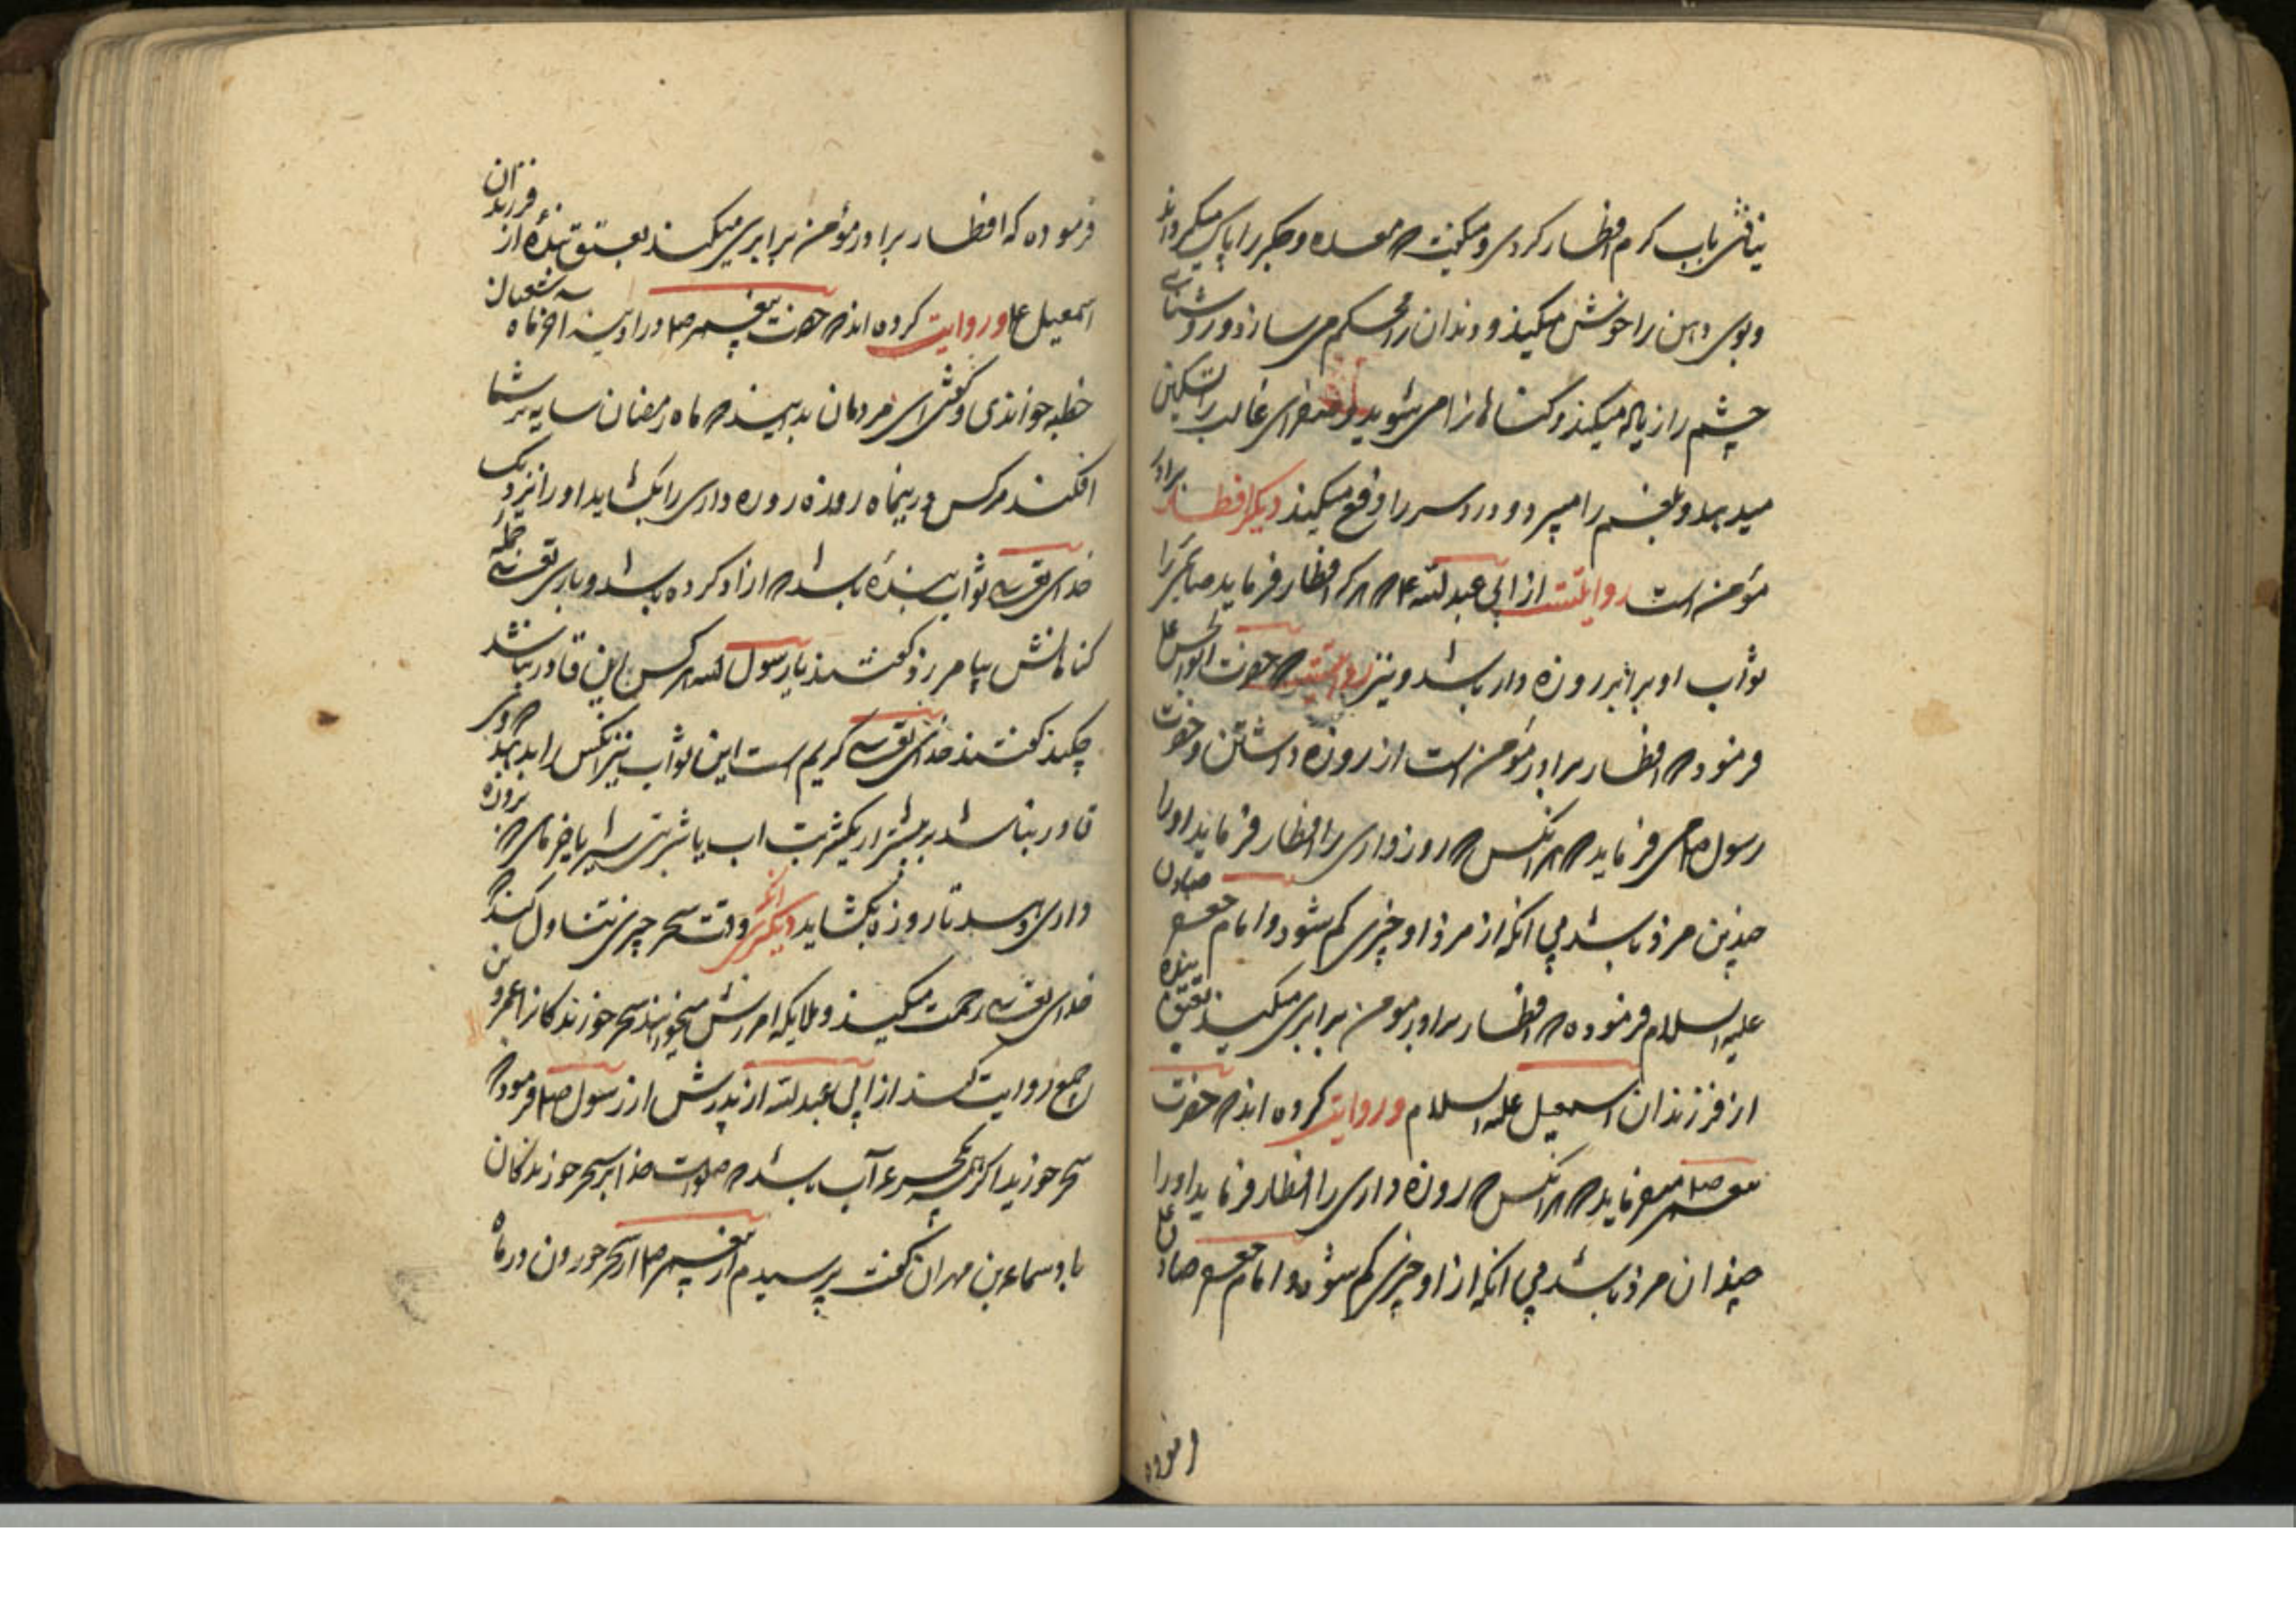 نیافتی باب کرم افطار کردی و میگفت که معده و جگر را پاک میگرداند
و بوی دهن را خوش میکند و دندان را محکم می سازد و روشنائی
چشم را زیاله میکند و کناهانرا می شوید و صفرای غالب را تسکین
میدهد و بلغم را میبرد و درد سر را دفع میکند دیکر افطار برادر
مؤمن است روایتست از ابی عبد الله ع که هرکه افطار فرماید صائمی را
ثواب او برابر روزه دار باشد و نیز روایتست که حضرت ابو الحسن ع
فرمود که افطار برادر مؤمن است از روزه داشتن و حضرت
رسول ص می فرماید که هر انکس که روزداری را افطار فرماید او را
چندین مرد باشد بی انکه از مرد او چیزی کم شود و امام جعفر صادق
علیه السلام فرموده که افطار برادر مومن برابری میکند بعتق بنده
از فرزندان اسمعیل علیه السلام و روایت کرده اند که حضرت
پیغمبر ص میفرماید که هر انکس که روزه داری را افطار فرماید او را
چندان مرد باشد بی انکه از او چیزی کم شود و امام جعفر صادق ع
فرموده
فرموده که افطار برادر مؤمن برابری میکند بعتق بندهٔ از فرزندان
اسمعیل ع و روایت کرده اند که حضرت پیغمبر ص در ادینه اخر ماه شعبان
خطبه خواندی و گفتی ای مردمان بدانید که ماه رمضان سایه بر شما
افکند هرکس درینماه روزه روزه داری را بکشاید او را نزدیک
خدای تعالی ثواب بندهٔ باشد که ازاد کرده باشد و باری تعالی جمله
کناهانش بیامرزد گفتند یا رسول الله هرکس باین قادر نباشد
چکند گفتند خدای تعالی کریم است این ثواب نیز انکس را بدهد که بر
قادر نباشد بیشتر از یکشربت اب یا شربتی شیر یا خرمای که بروزه
داری دهد تا روزه بکشاید دیکری انکه وقت سحر چیزی تناول کند که
خدای تعالی رحمت میکند و ملایکه امرزش میخواهند سحر خورندکانرا عمرو بن
جمیع روایت کند از ابی عبد الله از پدرش از رسول ص فرمود که
سحر خورید اکرچه بجرعهٔ آب باشد که صلوات خدا بر سحر خورندکان
باد سماعه بن مهران گفت پرسیدم از پیغمبر ص از سحر خوردن در ماه